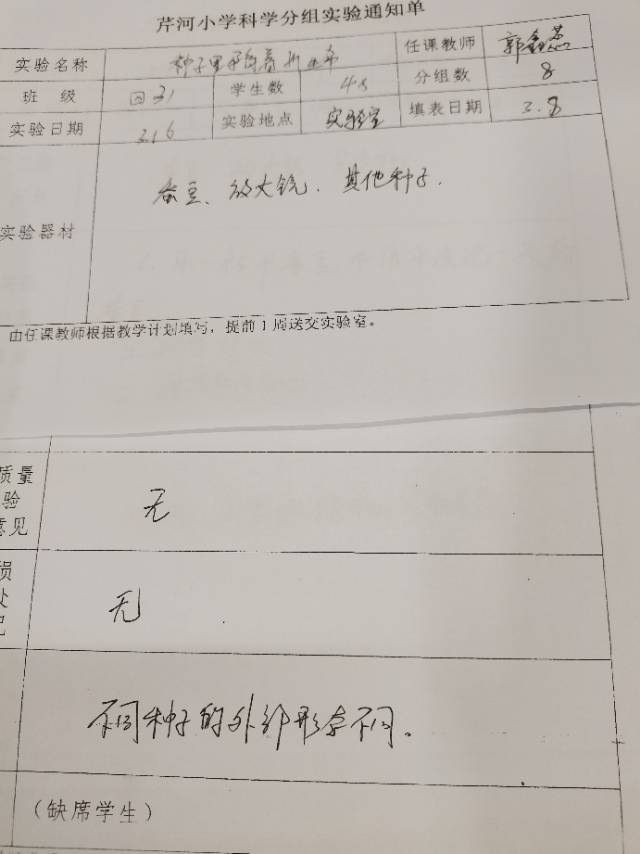 芹河小学科学分组实验通知单
实验名称 种子里孕育着新生命 任课教师 郭
班 级 四3) 学生数 48 分组数 8
实验日期 3.6 实验地点 实验室 填表日期 2.8
实验器材 蚕豆、放大镜、其他种子.
由任课教师根据教学计划填写，提前1周送交实验室。
质量
验
意见
无
损
处
记
无
不同种子的外部形态不同。
（缺席学生）